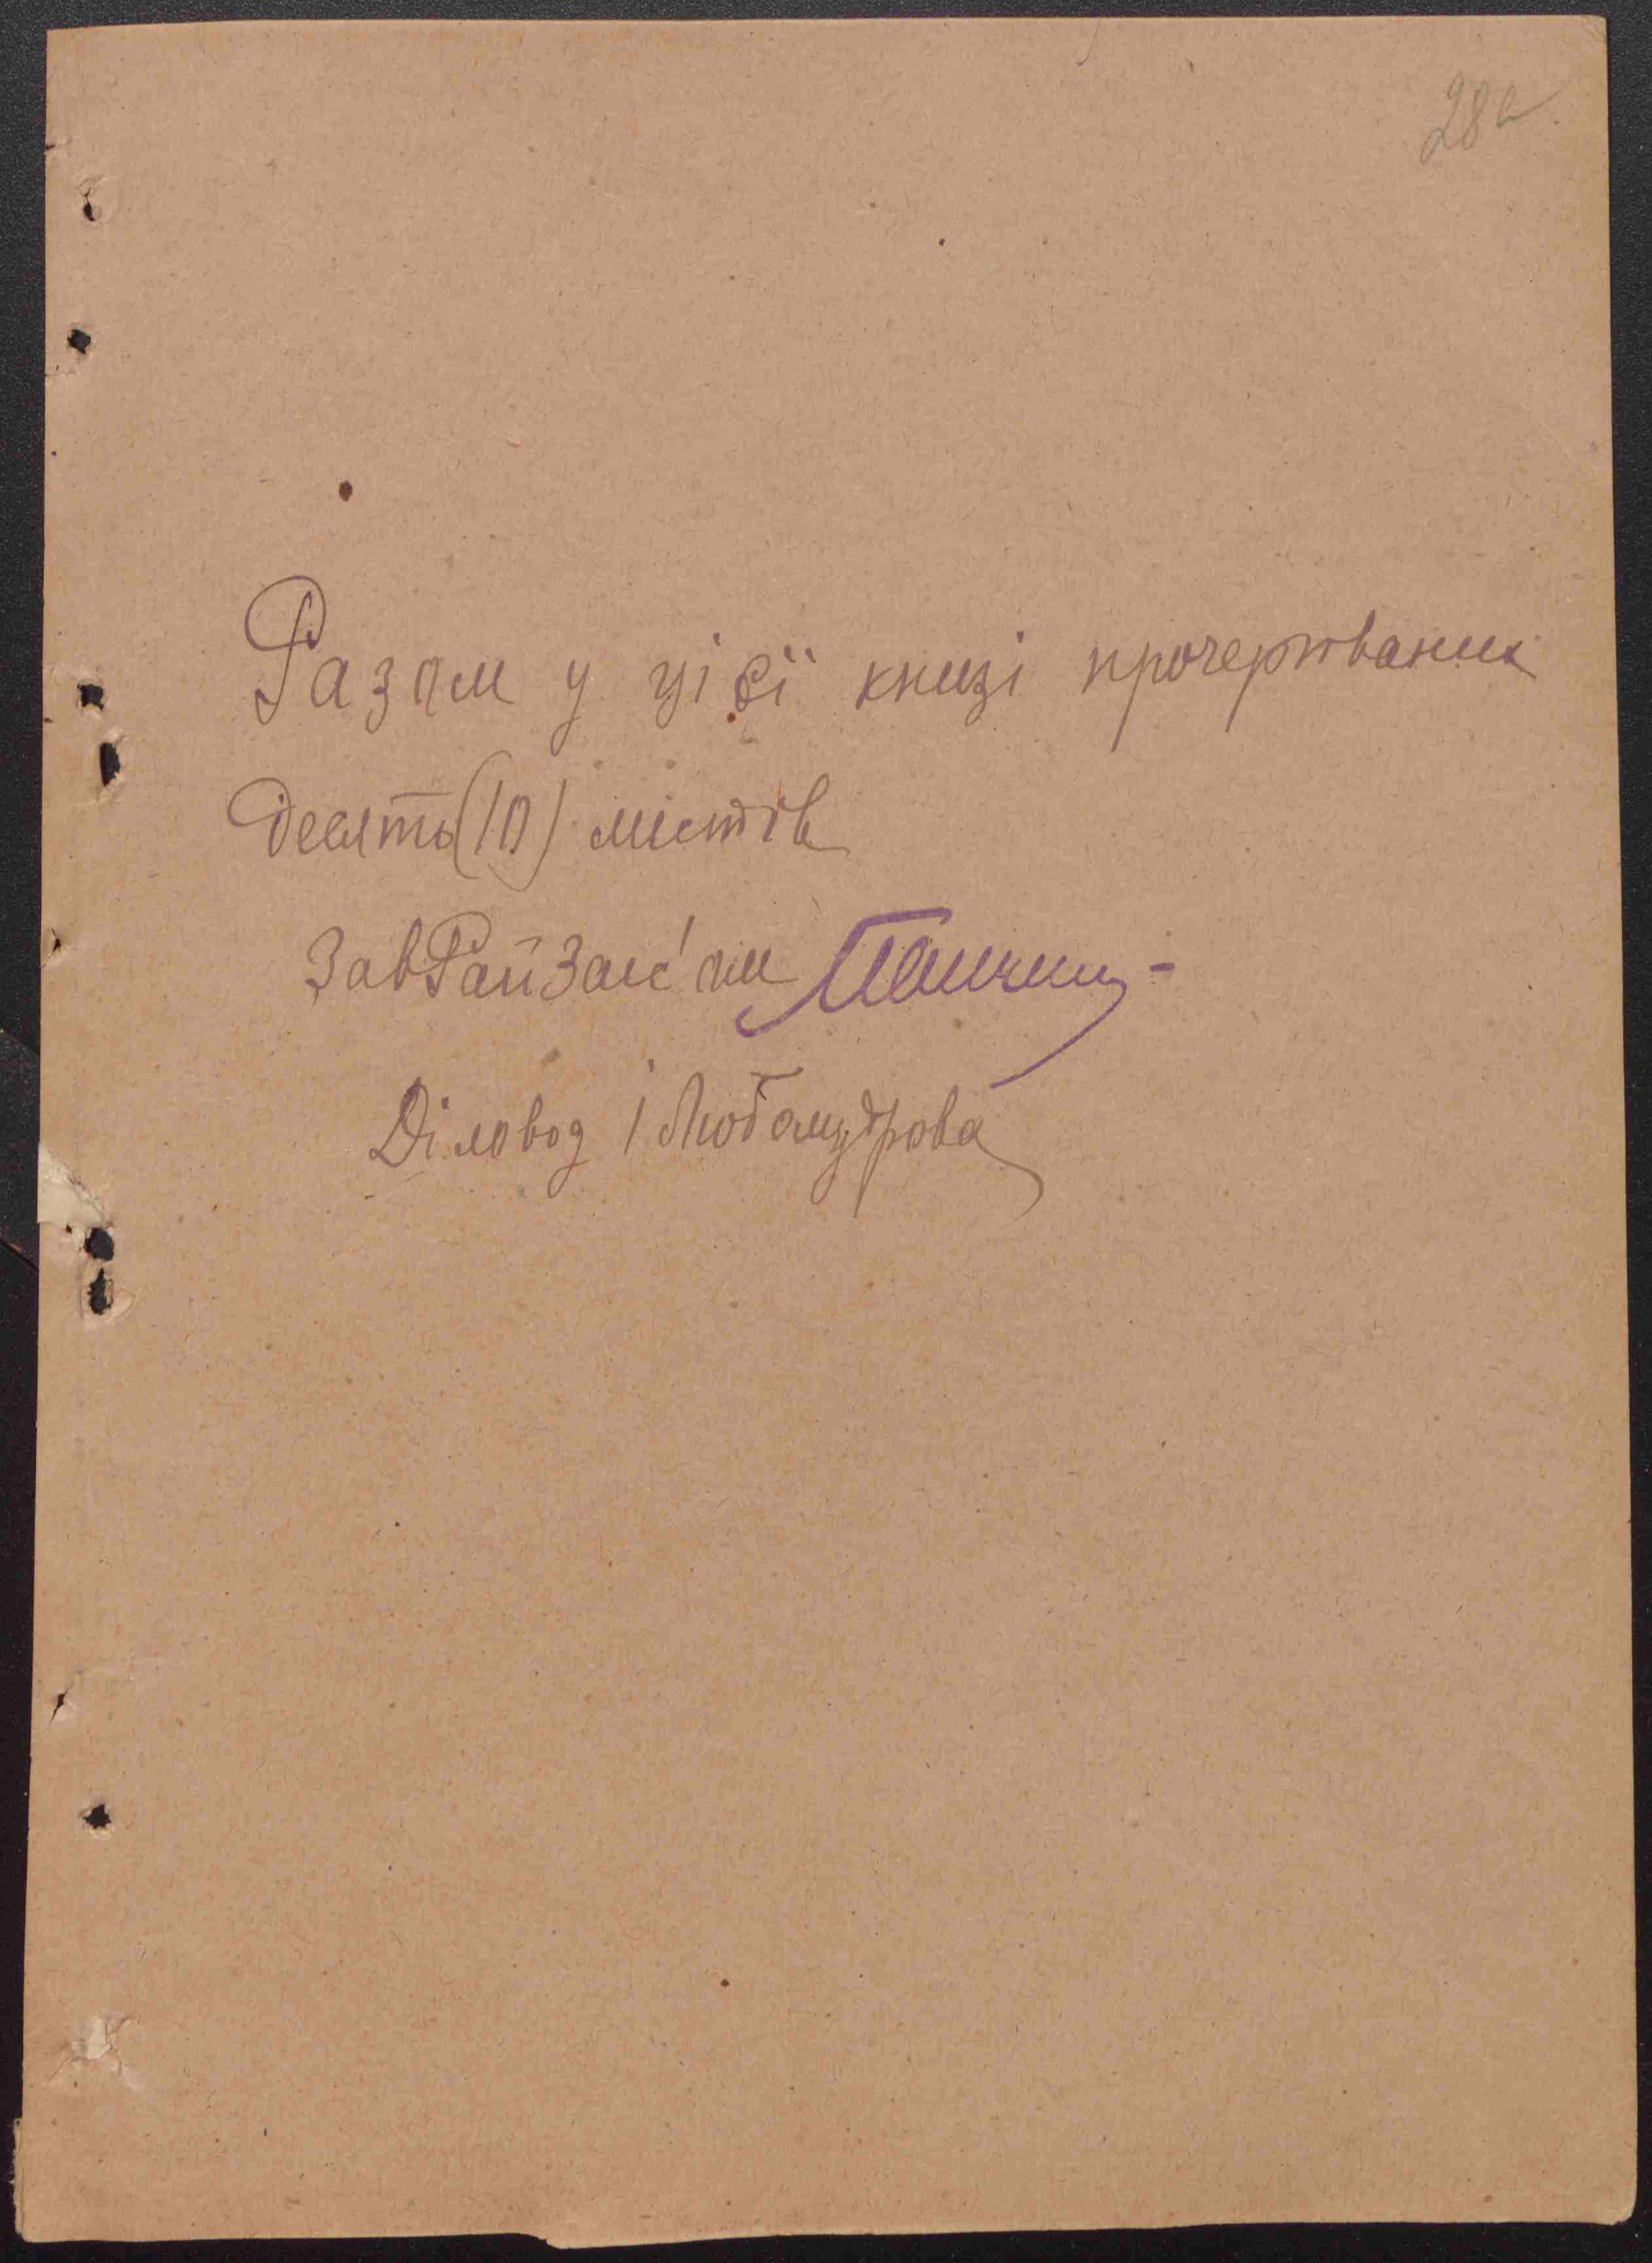 28а
Разом у ціеї книзі прочертваних
десять (10) листів
ЗавРайЗаг'ом
Діловод / Любомудрова